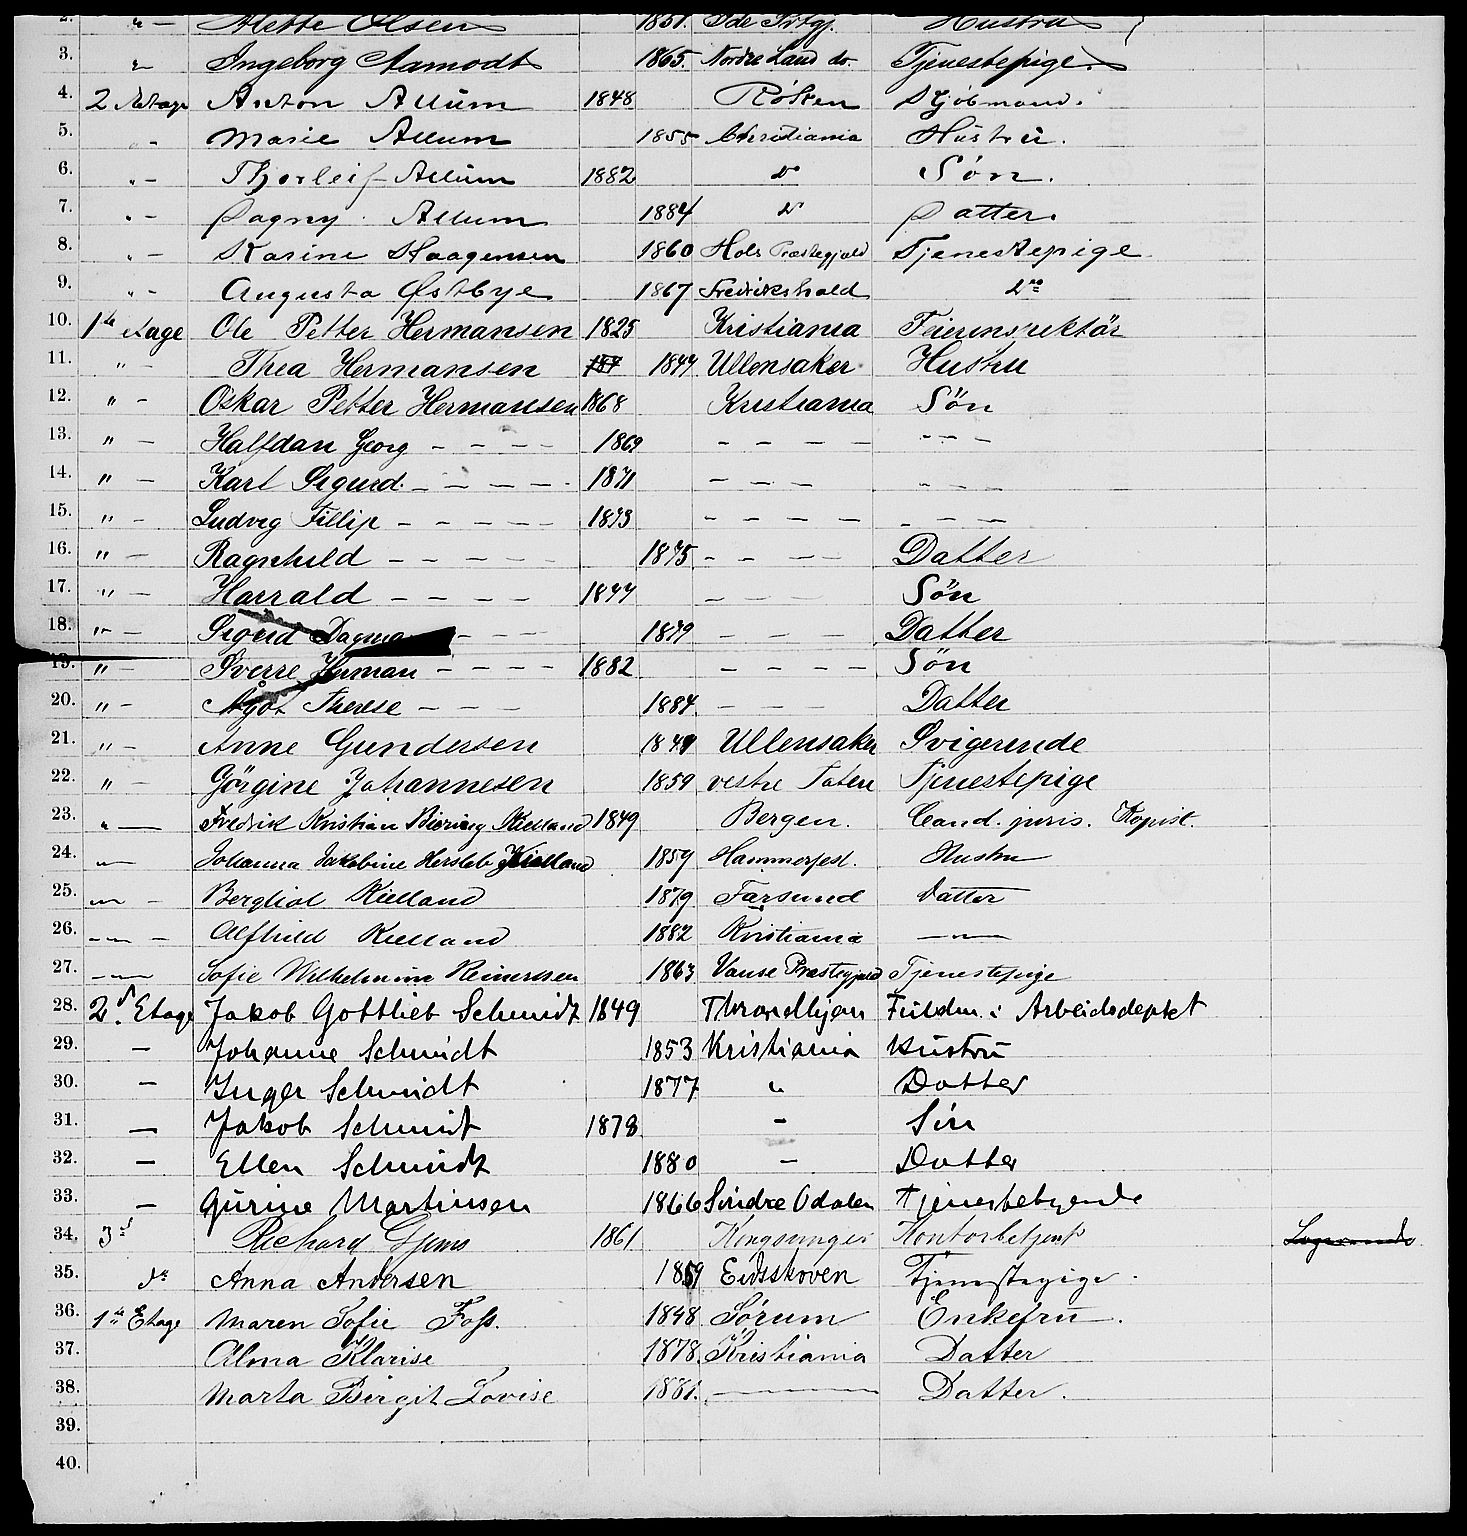 2. " - Alette Olsen 1851. Ide Prtgj. Hustru
3. " Ingeborg Aamodt 1865. Nordre Land do. Tjenestepige.
4. 2 Etage Anton Allum 1848 Röken Skjöbmand.
5. " - Marie Allum 1855 Christiania Hustru.
6. " - Thorleif Allum 1882 do Sön.
7. " - Dagny Allum 1884 do Datter.
8. " - Karine Haagensen 1860 Hols Præstegjeld Tjenestepige
9. " - Augusta Østbye 1867 Fredrikshald do
10. 1ste etage Ole Petter Hermansen 1825 Kristiania Feierinspektör
11. " - Thea Hermansen 1844 Ullensaker Hustru
12. " - Oskar Petter Hermansen 1868 Kristiania Sön
13. " - Halfdan Georg - - - - 1869 - - - - - - -
14. " - Karl Sigurd - - - - - 1871 - - - - - - -
15. " - Ludvig Fillip - - - - - 1873 - - - - - - -
16. " - Ragnhild - - - - 1875 - - - - Datter
17. " - Harrald - - - - 1877 - - - - Sön
18. " - Sigrid Dagmar - - - 1879 - - - Datter
19. " - Sverre Herman - - - - 1882 - - - - Sön
20. " - Ågot Therese - - - 1884 - - - Datter
21. " - Anne Gundersen 1849 Ullensaker Svigerinde
22. " - Görgine Johannesen 1859 vestre Toten Tjenestepige
23. " - Fredrik Kristian Biering Kielland 1849 Bergen. Cand. juris. Kopist.
24. " Johanna Jakobine Hersleb Kielland 1859 Hammerfest. Hustru
25. " - Bergliot Kielland 1879 Farsund Datter
26. - " - Alfhild Kielland 1882 Kristiania - " -
27. - " - Sofie Wilhelmine Reinertsen 1863 Vanse Præstegjeld Tjenestepige
28. 2d. Etage Jakob Gottlieb Schmidt 1849 Throndhjem Fuldm. i Arbeidsdeptet
29. - Johanne Schmidt 1853 Kristiania Hustru
30. - Inger Schmidt 1877 " Datter
31. - Jakob Schmidt 1878 - Sön
32. - Ellen Schmidt 1880 - Datter
33. - Gurine Martinsen 1866 Söndre Odalen Tjenestetyende
34. 3d Richard Gjems 1861 Kongsvinger Kontorbetjent Logerende
35. do Anna Andersen 1859 Eidsskoven Tjenestepige.
36. 1ste Etage Maren Sofie Foss. 1848 Sörum Enkefru.
37. Alma Klarise 1878. Kristiania Datter
38. Marta Birgit Lovise 1881. - Datter.
39.
40.